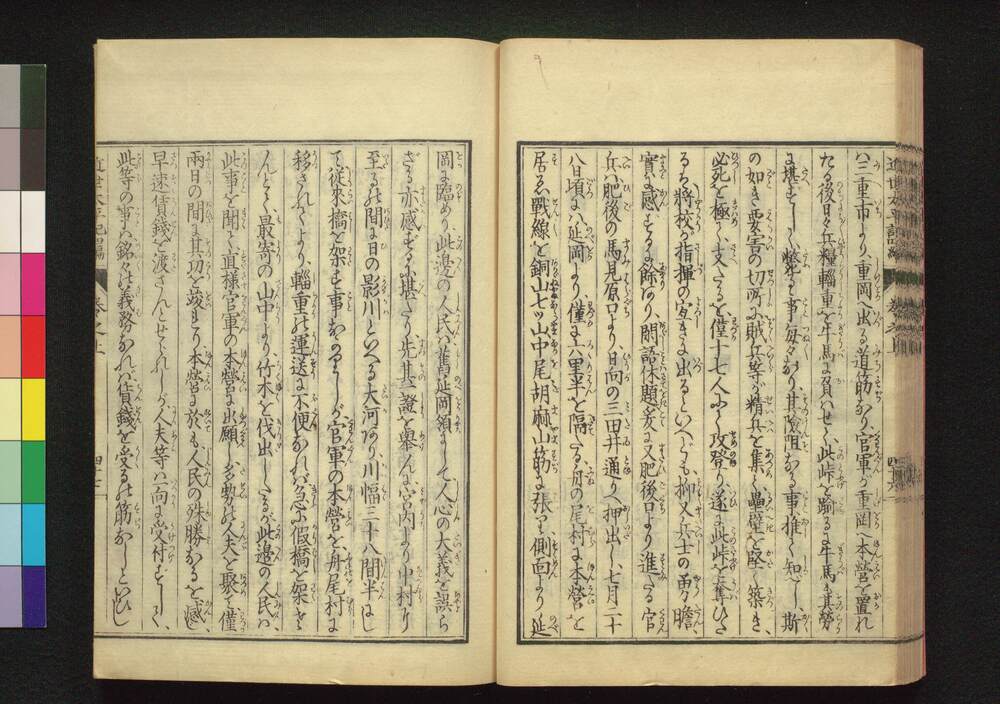 ハ三重市より、重岡へ出る道筋なり、官軍が重岡へ本營を置れ
たる後日々兵糧輜重を牛馬に負ハせて、此峠を踰るに牛馬も其勞
に堪ずして、斃るゝ事毎々なり、其險阻なる事推て知べし、斯
の如き要害の切所に賊兵等が精兵を集て、壘壁を堅く築き、
必死を極て支たるを、僅十七人にて攻登り、遂に此峠を奪ひさ
るも將校が指揮の宜きに出るといへども、抑又兵士の勇膽
實に感ずるに餘りあり、閑話休題爰に又肥後口より進たる官
兵ハ、肥後の馬見原口より、日向の三田井通りへ押出し、七月二十
八日頃にハ延岡より、僅に六里半を隔たる、舟の尾村に本營を
居ゑ、戰線を銅山七ツ山中尾胡麻山筋に張り、側面より延
岡に臨めり、此邊の人民ハ舊延岡領にして人心の大義を誤ら
ざる亦感ずるに堪たり、先其一證を擧んに、宮内より中村
至るの間に日の影川といへる大河あり、川幅三十八間半にし
て、從來橋を架す事なかりしが、官軍の本營を、舟尾村に
移されてより、輜重の運送に不便なれバ、急に假橋を架せ
んとて、最寄の山中より竹木を伐出したるが、此邊の人民ハ
此事を聞て、直樣官軍の本營に出願し、多勢の人夫を聚て僅
兩日の間に其功を竣れり、本營に於も、人民の殊勝なるを感じ、
早速賃錢を渡さんとせられしが、人夫等ハ向に受付ずして、
此等の事ハ銘々の義務なれバ、賃錢を受るの筋なしといひし